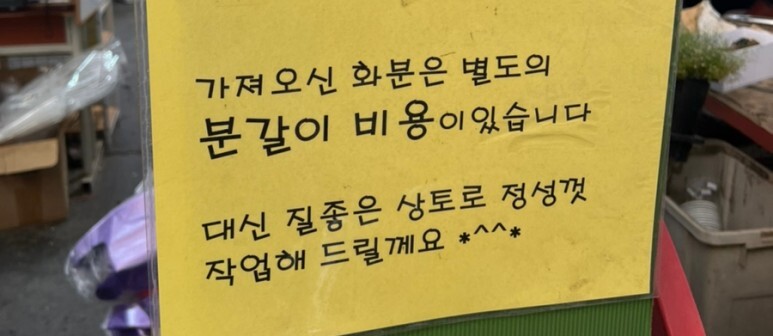 가져오신 화분은 별도의
분갈이 비용이있습니다
대신 질좋은 상토로 정성껏
작업해 드릴게요 *^^*